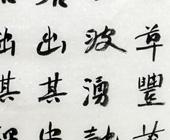 草豐
波湧
出其
出其